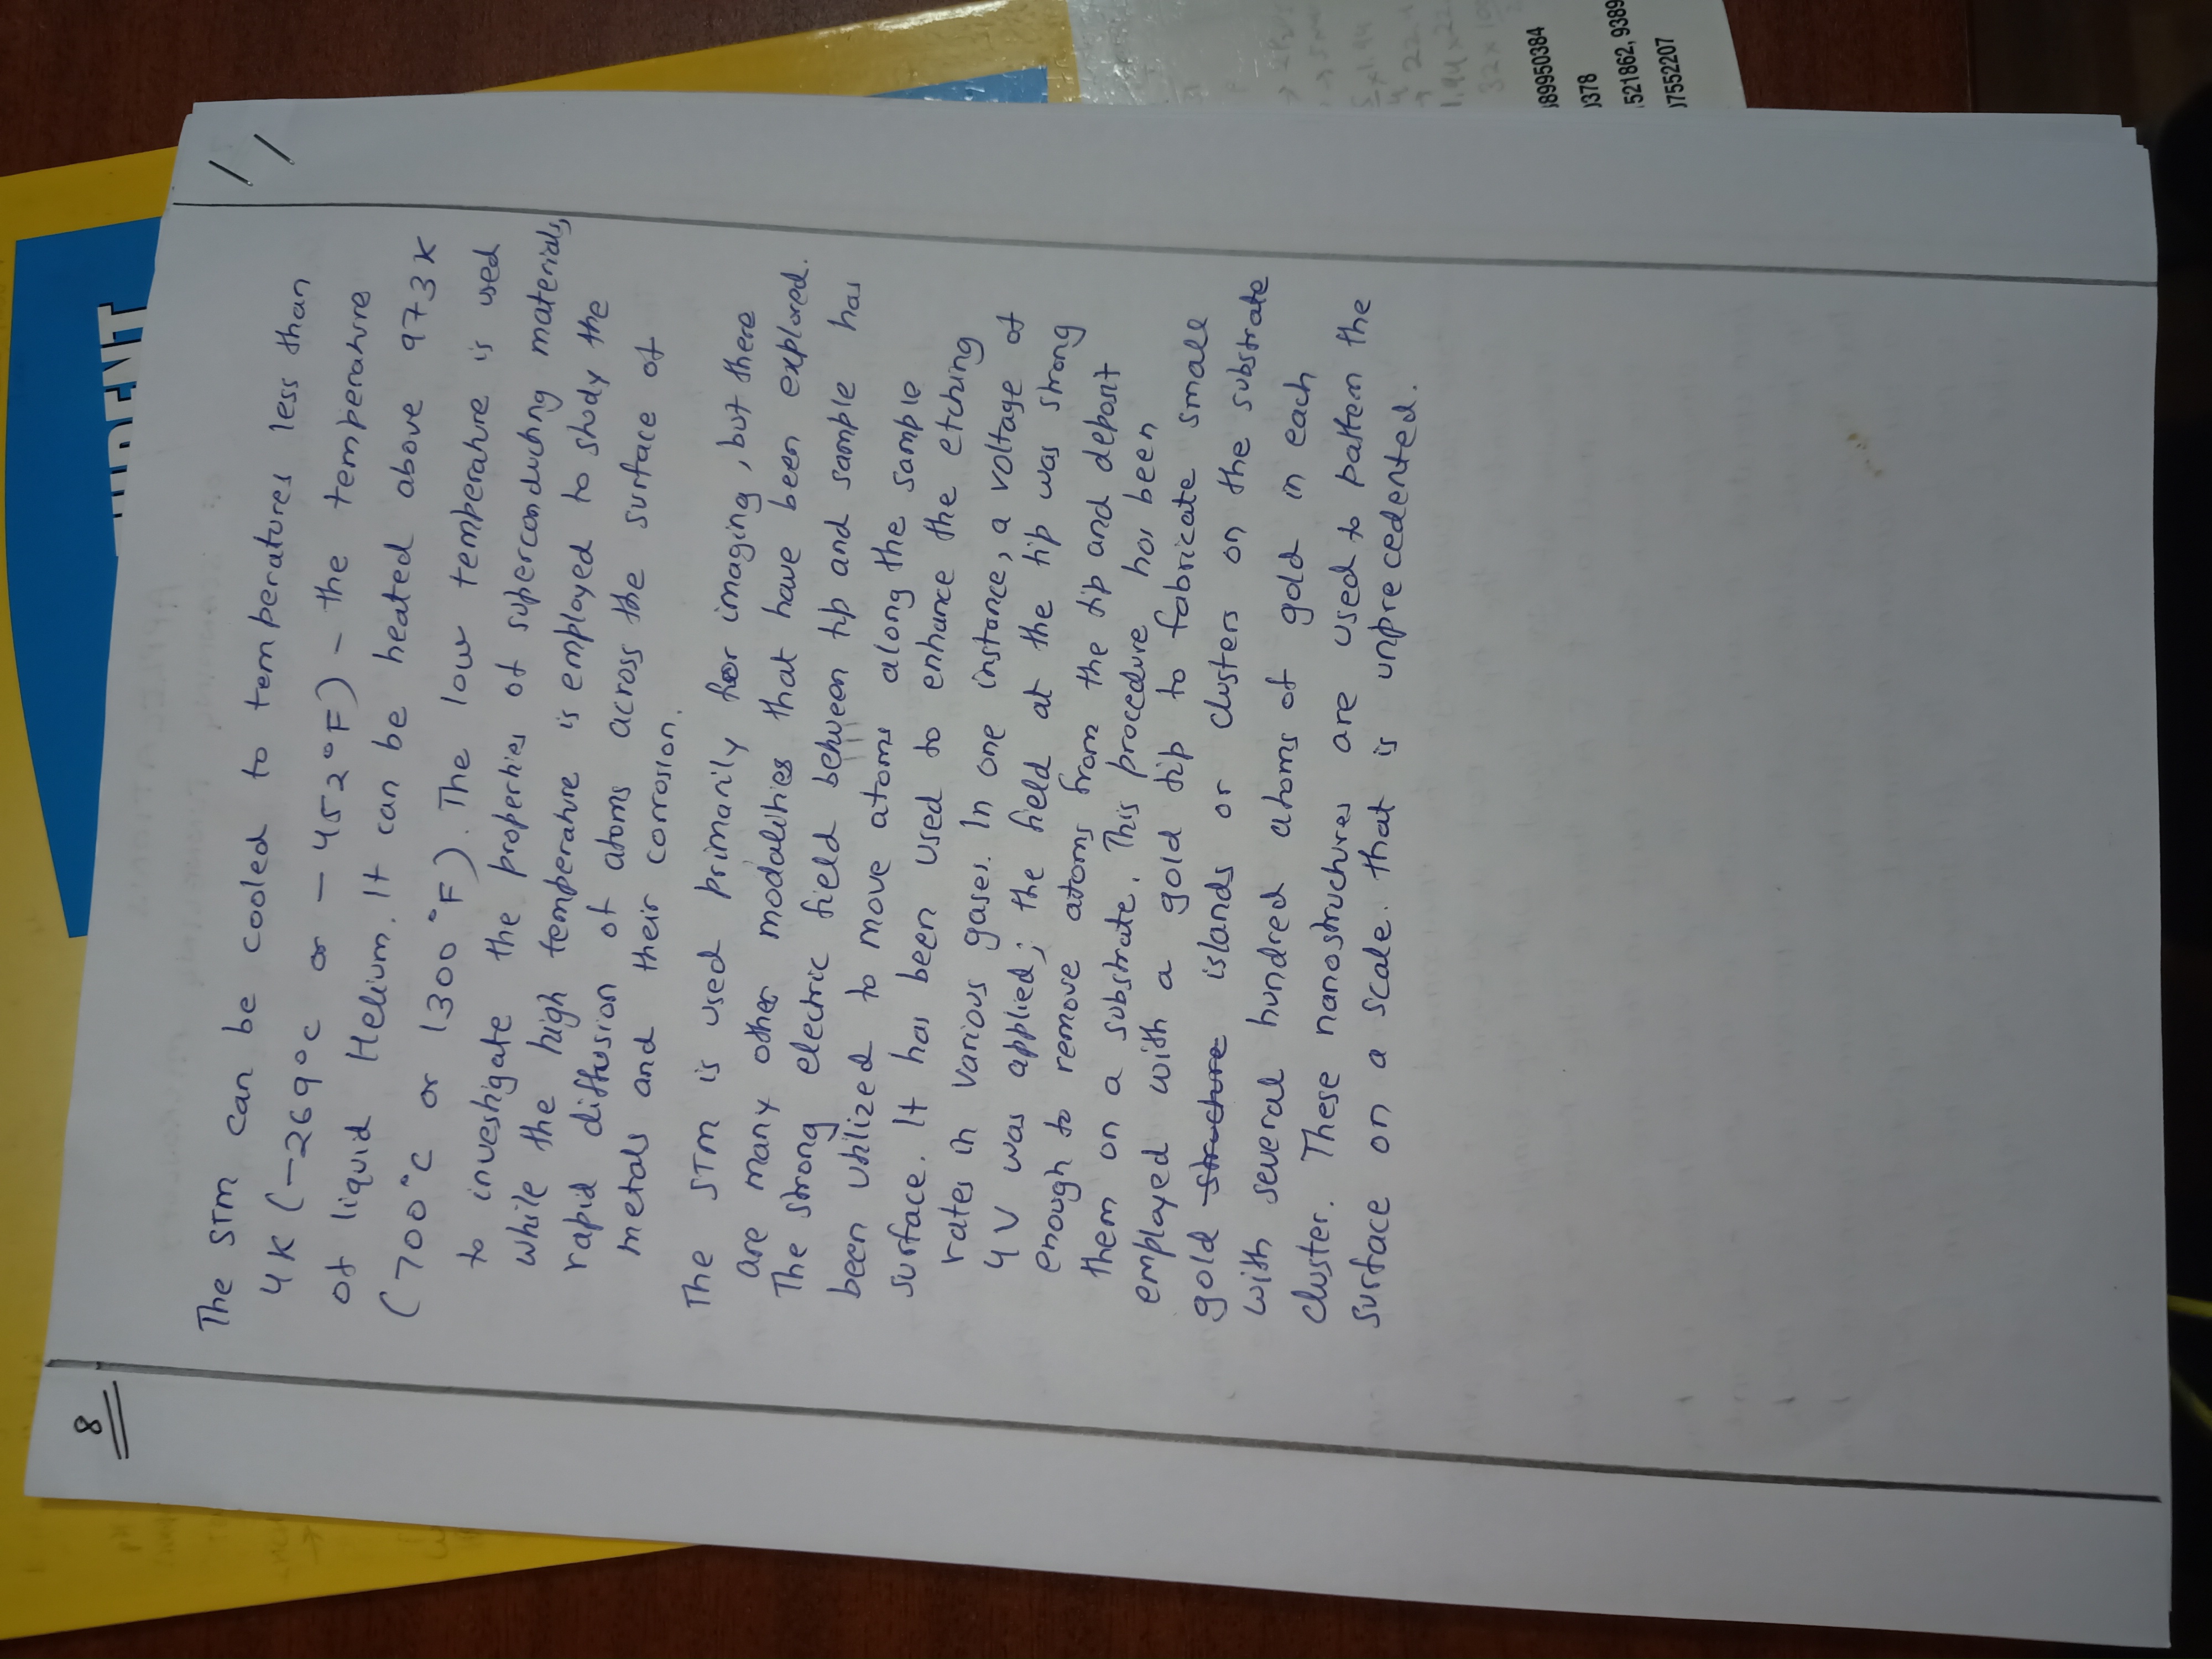 8
The STM can be cooled to temperatures less than
4K (-269°C or -452°F) - the temperature
of liquid Helium. It can be heated above 973K
(700°C or 1300°F). The low temperature is used
to investigate the properties of superconducting materials,
while the high temperature is employed to study the
rapid diffusion of atoms across the surface of
metals and their corrosion.
The STM is used primarily for imaging, but there
are many other modalities that have been explored.
The strong electric field between tip and sample has
been utilized to move atoms along the sample
surface. It has been used to enhance the etching
rates in various gases. In one instance, a voltage of
4V was applied; the field at the tip was strong
enough to remove atoms from the tip and deposit
them on a substrate. This procedure has been
employed with a gold tip to fabricate small
gold structure islands or clusters on the substrate
with several hundred atoms of gold in each
cluster. These nanostructures are used to pattern the
surface on a scale. that is unprecedented.
89950384
0378
521862, 9389
07552207